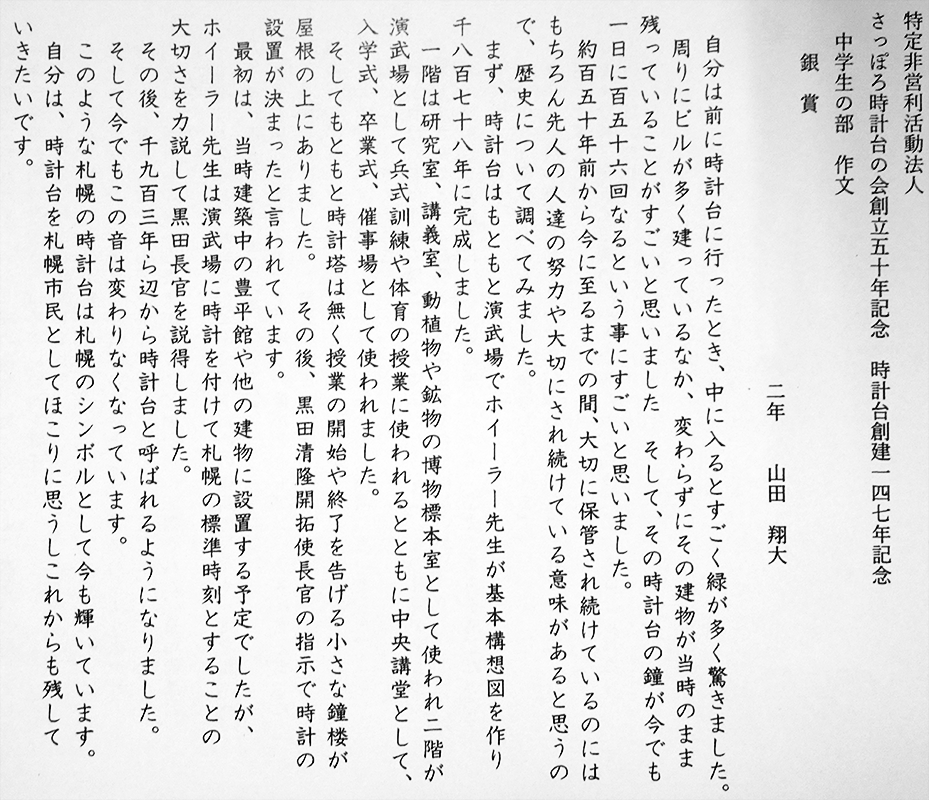 特定非営利活動法人
さっぽろ時計台の会創立五十年記念　時計台創建一四七年記念
中学生の部　作文
銀　賞
二年　山田　翔大
自分は前に時計台に行ったとき、中に入るとすごく緑が多く驚きました。
周りにビルが多く建っているなか、変わらずにその建物が当時のまま
残っていることがすごいと思いました　そして、その時計台の鐘が今でも
一日に百五十六回なるという事にすごいと思いました。
約百五十年前から今に至るまでの間、大切に保管され続けているのには
もちろん先人の人達の努力や大切にされ続けている意味があると思うの
で、歴史について調べてみました。
まず、時計台はもともと演武場でホイーラー先生が基本構想図を作り
千八百七十八年に完成しました。
一階は研究室、講義室、動植物や鉱物の博物標本室として使われ二階が
演武場として兵式訓練や体育の授業に使われるとともに中央講堂として、
入学式、卒業式、催事場として使われました。
そしてもともと時計塔は無く授業の開始や終了を告げる小さな鐘楼が
屋根の上にありました。　その後、黒田清隆開拓使長官の指示で時計の
設置が決まったと言われています。
最初は、当時建築中の豊平館や他の建物に設置する予定でしたが、
ホイーラー先生は演武場に時計を付けて札幌の標準時刻とすることの
大切さを力説して黒田長官を説得しました。
その後、千九百三年ら辺から時計台と呼ばれるようになりました。
そして今でもこの音は変わりなくなっています。
このような札幌の時計台は札幌のシンボルとして今も輝いています。
自分は、時計台を札幌市民としてほこりに思うしこれからも残して
いきたいです。